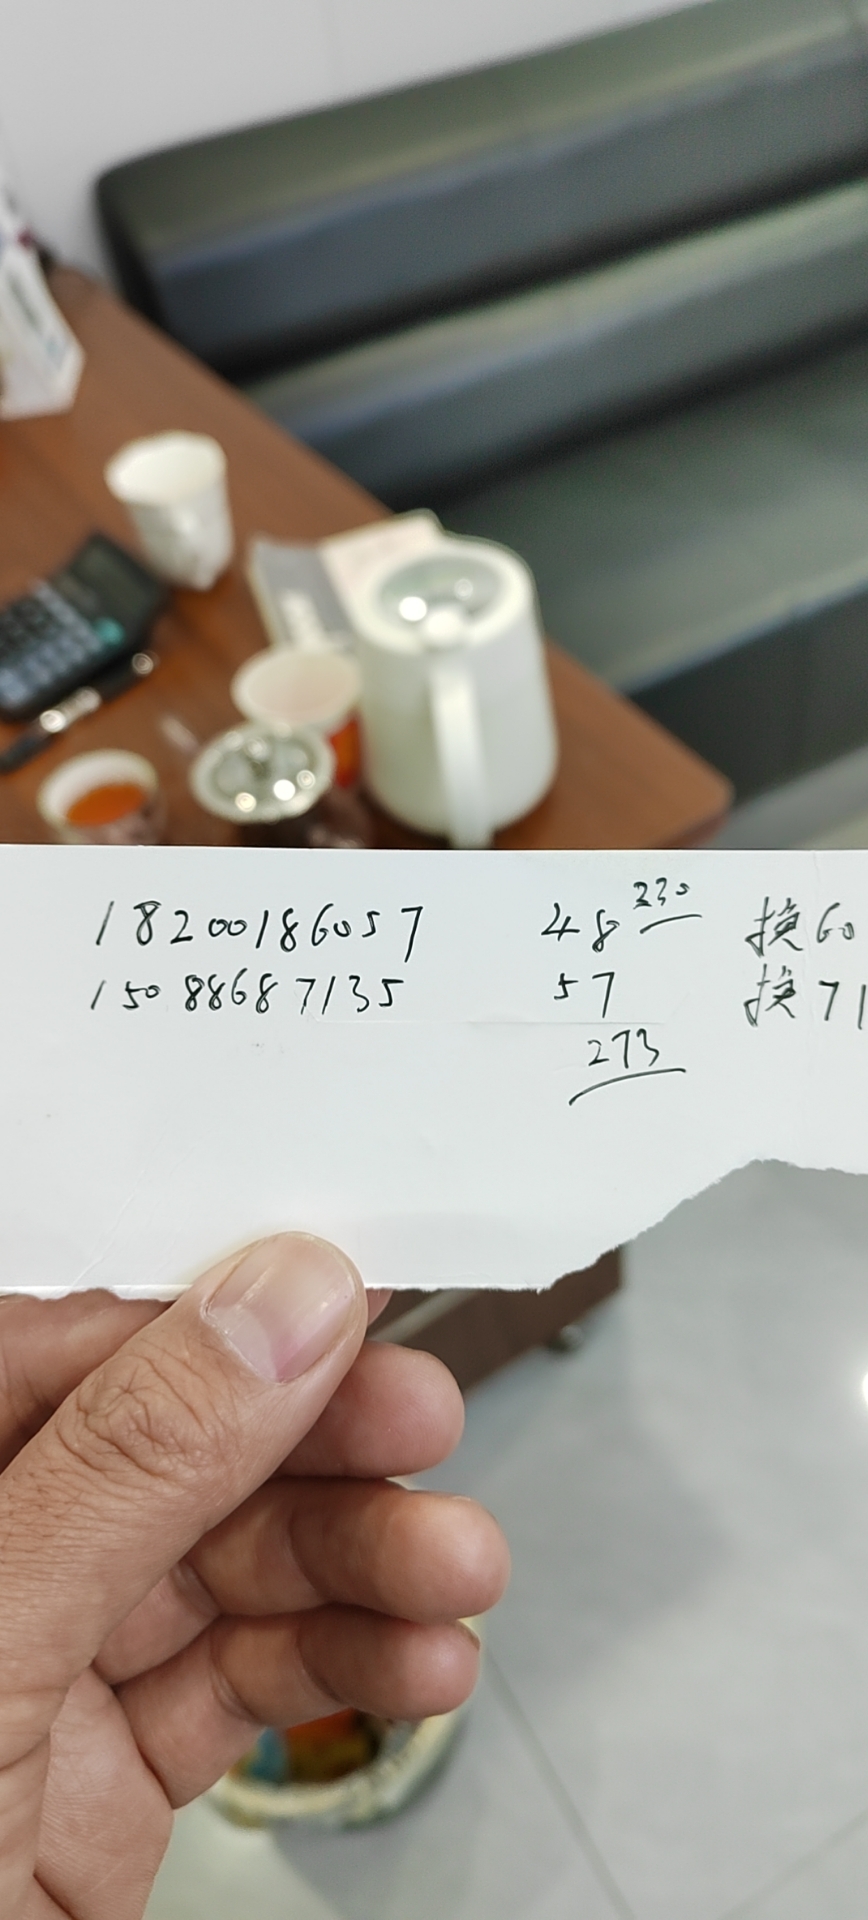 18200186057 48 230 换60
15088687135 57 换71
273